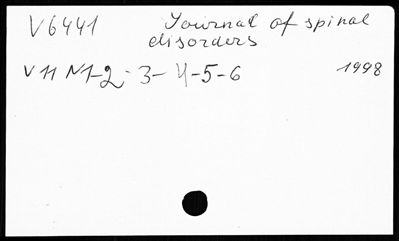 V6441 Journal of spinal
disorders
V11 N1-2-3-4-5-6 1998